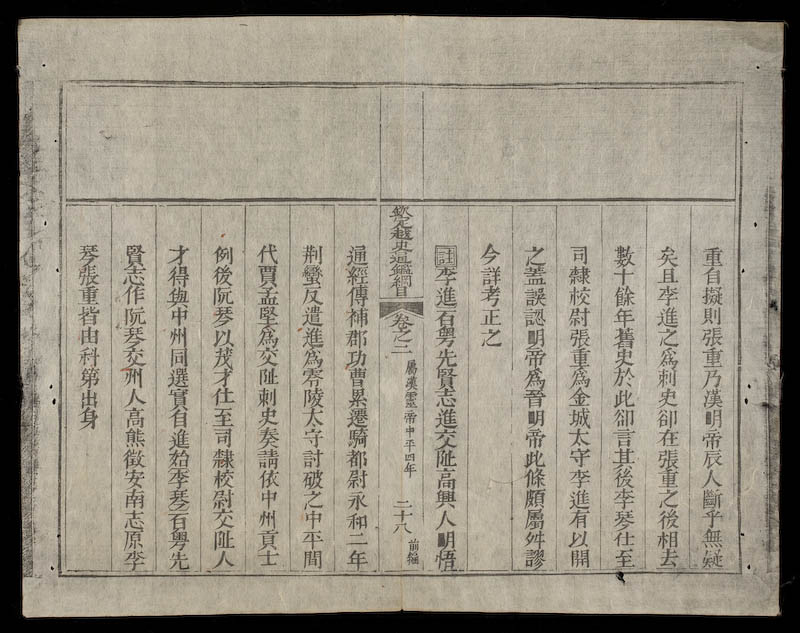 重自擬則張重乃漢明帝辰人斷乎無疑
矣且李進之爲刺史卻在張重之後相去
數十餘年舊史於此卻言其後李琴仕至
司隸校尉張重爲金城太守李進有以開
之蓋誤認明帝爲晉明帝此條頗屬舛謬
今詳考正之
註李進百粵先賢志進交趾高興人明悟
欽定越史通鑑綱目 卷之二 屬漢靈帝中平四年 二十八 前編
通經傳補郡功曹累遷騎都尉永和二年
荆蠻反遣進爲零陵太守討破之中平間
代賈孟堅爲交趾刺史奏請依中州貢士
例後阮琴以茂才仕至司隸校尉交趾人
才得與中州同選實自進始李琴百粵先
賢志作阮琴交州人高熊徵安南志原李
琴張重皆由科第出身